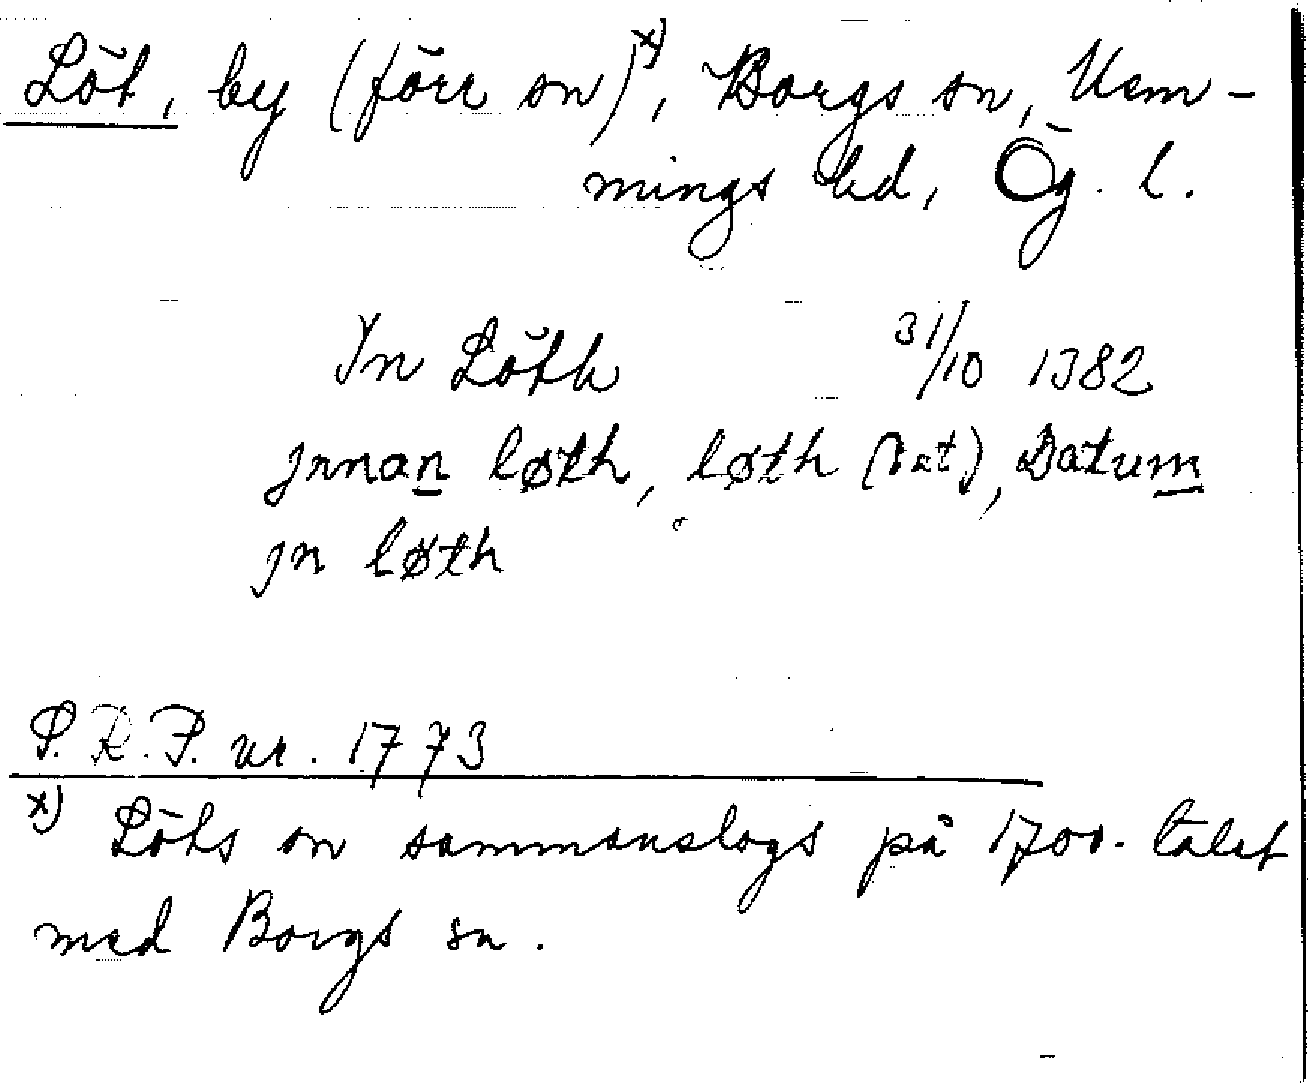 Löt, by (förr sn)x), Borgs sn, Mem-
mings hd, Ög. l.
In Löth 31/10 1382
jnnan løth, løth (dat), Datum
jn løth
S.R.P. nr. 1773
x) Löts sn sammanslogs på 1700-talet
med Borgs sn.